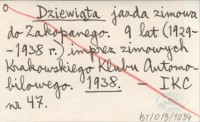 Dziewiąta jazda zimowa
do Zakopanego. 9 lat (1929-
-1938 r.) imprez zimowych
Krakowskiego Klubu Automo-
bilowego. 1938. - IKC
nr 47.
bt/013/1034